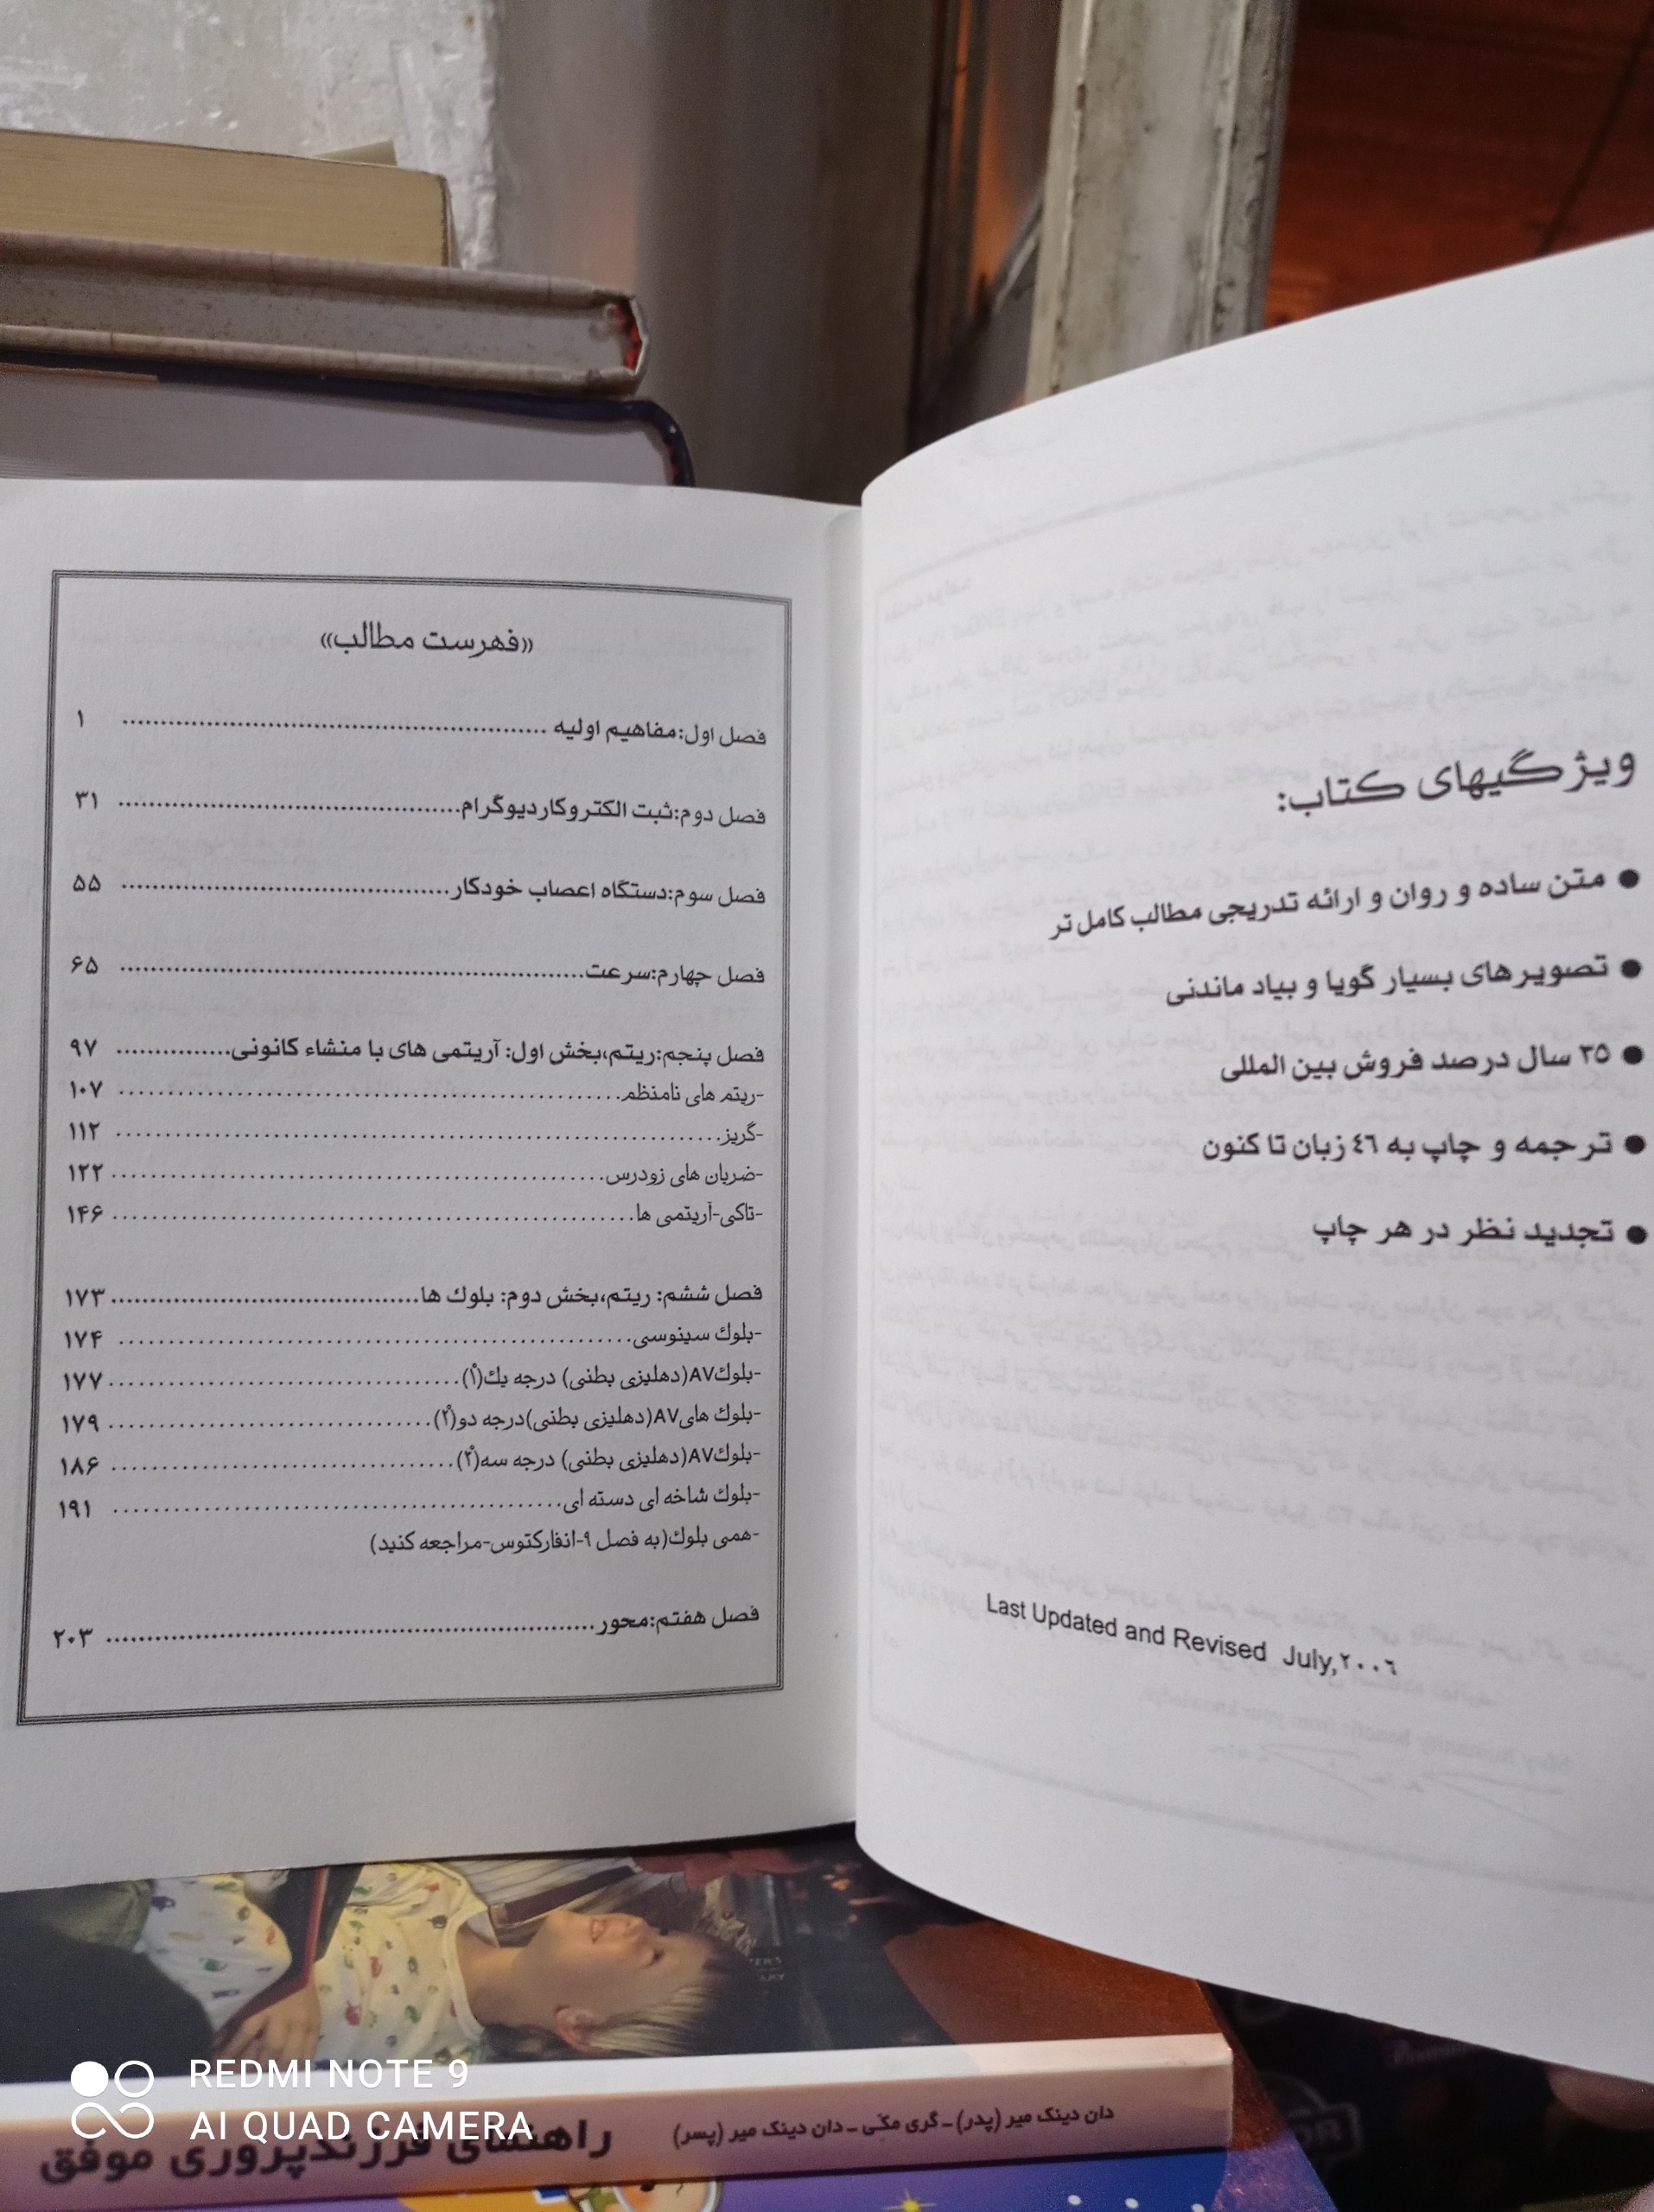 ویژگیهای کتاب:
● متن ساده و روان و ارائه تدریجی مطالب کامل تر
● تصویرهای بسیار گویا و بیاد ماندنی
● ۳۵ سال درصد فروش بین المللی
● ترجمه و چاپ به ٤٦ زبان تا کنون
● تجدید نظر در هر چاپ
Last Updated and Revised July,٢٠٠٦
«فهرست مطالب»
فصل اول:مفاهیم اولیه ........................ ۱
فصل دوم:ثبت الکتروکاردیوگرام........................ ۳۱
فصل سوم:دستگاه اعصاب خودکار........................ ۵۵
فصل چهارم:سرعت........................ ۶۵
فصل پنجم:ریتم،بخش اول: آریتمی های با منشاء کانونی............... ۹۷
-ریتم های نامنظم........................ ۱۰۷
-گریز........................ ۱۱۲
-ضربان های زودرس........................ ۱۲۲
-تاکی-آریتمی ها........................ ۱۴۶
فصل ششم: ریتم،بخش دوم: بلوك ها........................ ۱۷۳
-بلوك سینوسی........................ ۱۷۴
-بلوكAV(دهلیزی بطنی) درجه یك(۱ْ)........................ ۱۷۷
-بلوك هایAV(دهلیزی بطنی)درجه دو(۲ْ)........................ ۱۷۹
-بلوكAV(دهلیزی بطنی) درجه سه(۳ْ)........................ ۱۸۶
-بلوك شاخه ای دسته ای........................ ۱۹۱
-همی بلوك(به فصل ۹-انفارکتوس-مراجعه کنید)
فصل هفتم:محور........................ ۲۰۳
REDMI NOTE 9
AI QUAD CAMERA
راهنمای فرزندپروری موفق
دان دینک میر (پدر) ـ گری مکّی ـ دان دینک میر (پسر)